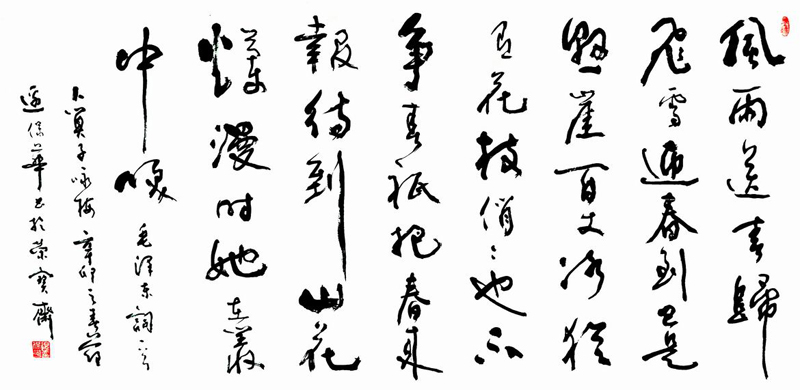 風雨送春歸
飛雪迎春到已是
懸崖百丈冰猶
有花枝俏々也不
争春祇把春來
報待到山花
爛漫時她在叢
中笑 毛澤東詞一首
卜算子咏梅 辛卯之春
保華書於榮寶齋